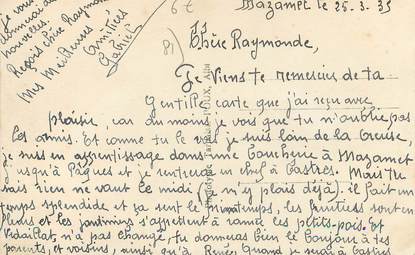 Mazamet le 25-3-35
je vous
donnerai de
nouvelles.
Reçois chère Raymonde
Mes Meilleures
Amitiés
Gabriel
6t
81
Chère Raymonde,
Je viens te remercier de ta
Gentille carte que j'ai reçu avec
plaisir, car du moins je vois que tu n'oublie pas
les amis. Et comme tu le vois je suis loin de la Creuse,
je suis en apprentissage dans une Boucherie à Mazamet
jusqu'à Pâques et je rentrerai en chef à Castres. Mais tu
sais rien ne vaut le midi (je m'y plais déjà). il fait un
temps splendide et ça sent le printemps, les fruitiers sont en
fleurs et les jardiniers s'apprêtent à ramer les petits-pois. Et
Vidaillat, n'a pas changé, tu donneras bien le Bonjour à tes
parents, et voisins, ainsi qu'à René. Quand je serai à Castres